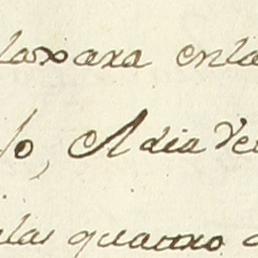 laxara en la
so, A dia Ve
las quatro